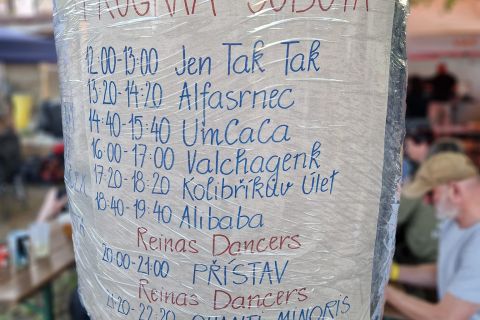 PROGRAM SOBOTA
12:00-13:00 Jen Tak Tak
13:20-14:20 Alfasrnec
14:40-15:40 UmCaCa
16:00-17:00 Valchagenk
17:20-18:20 Kolibříkův Úlet
18:40-19:40 Alibaba
Reinas Dancers
20:00-21:00 PŘÍSTAV
Reinas Dancers
21:20-22:20 QUANTI MINORIS